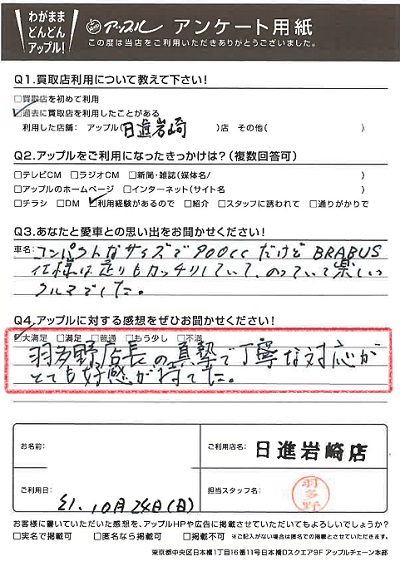 わがまま
どんどん
アップル!
アップル アンケート用紙
この度は当店をご利用いただきありがとうございました。
Q1.買取店利用について教えて下さい!
□買取店を初めて利用
☑過去に買取店を利用したことがある
利用した店舗: アップル(日進岩崎)店 その他( )
Q2.アップルをご利用になったきっかけは?(複数回答可)
□テレビCM □ラジオCM □新聞・雑誌(媒体名/ )
□アップルのホームページ □インターネット(サイト名 )
□チラシ □DM ☑利用経験があるので □紹介 □スタッフに誘われて □通りがかりで
Q3.あなたと愛車との思い出をお聞かせください!
車名: コンパクトなサイズで900ccだけどBRABUS
仕様は走りもカッチリしていて、のっていて楽しい
クルマでした。
Q4.アップルに対する感想をぜひお聞かせください!
☑大満足 □満足 □普通 □もう少し □不満
羽多野店長の真摯で丁寧な対応が
とても好感が持てた。
お名前:
ご利用店名:
日進岩崎店
ご利用日:
10月24日(日)
担当スタッフ名:
羽多野
お客様に書いていただいた感想を、アップルHPや広告に掲載させていただいてもよろしいでしょうか?
□実名で掲載可 □匿名なら掲載可 □掲載不可 ※ご記入がない場合は匿名での掲載とさせていただきます。
東京都中央区日本橋1丁目16番11号日本橋Dスクエア9F アップルチェーン本部